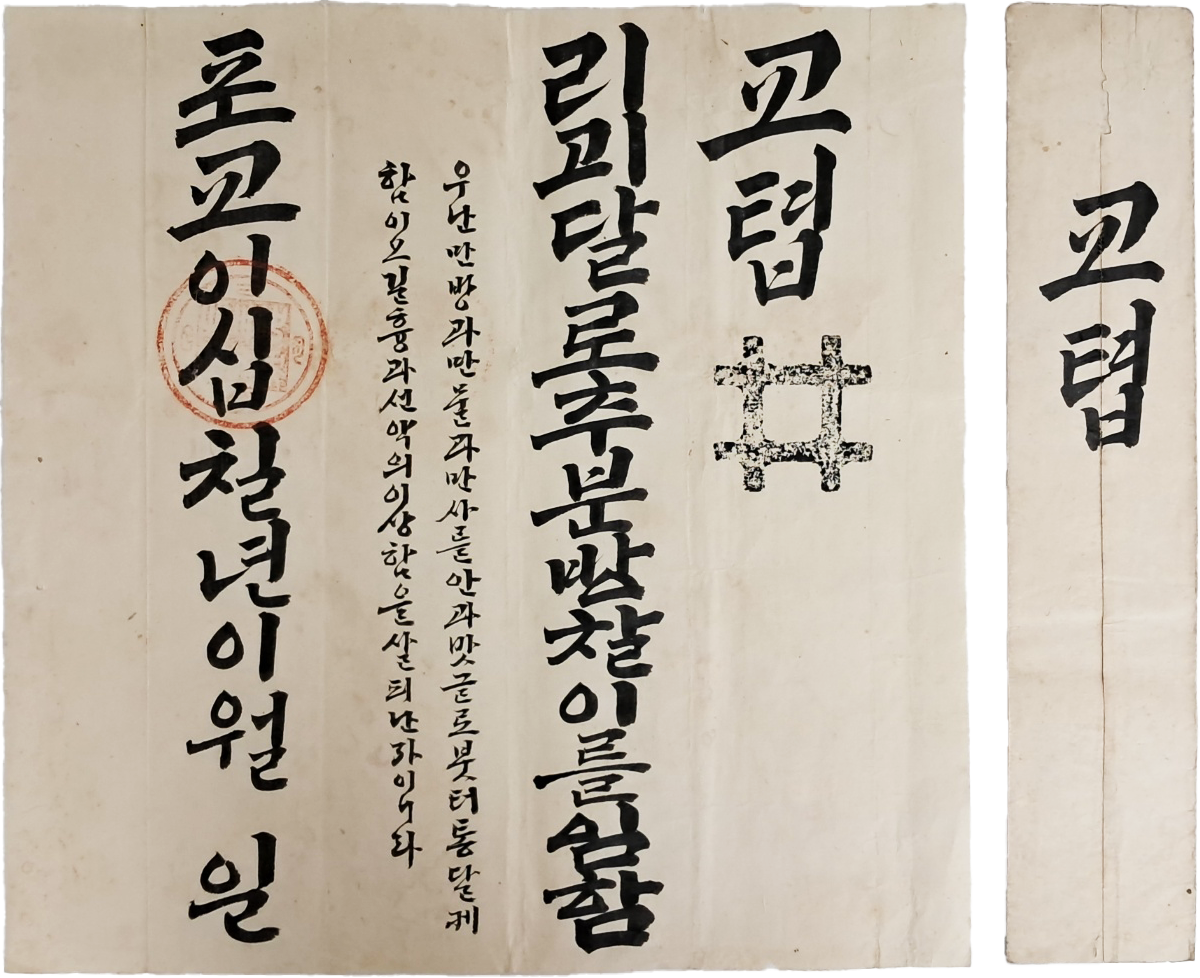 교텹
리괴달로추분반찰이를임함
우난만방과만물과만사를안과밧글로붓터통달케
함이오길흉과선악의이상함을살피난자이니라
포교이십칠년이월 일
교텹